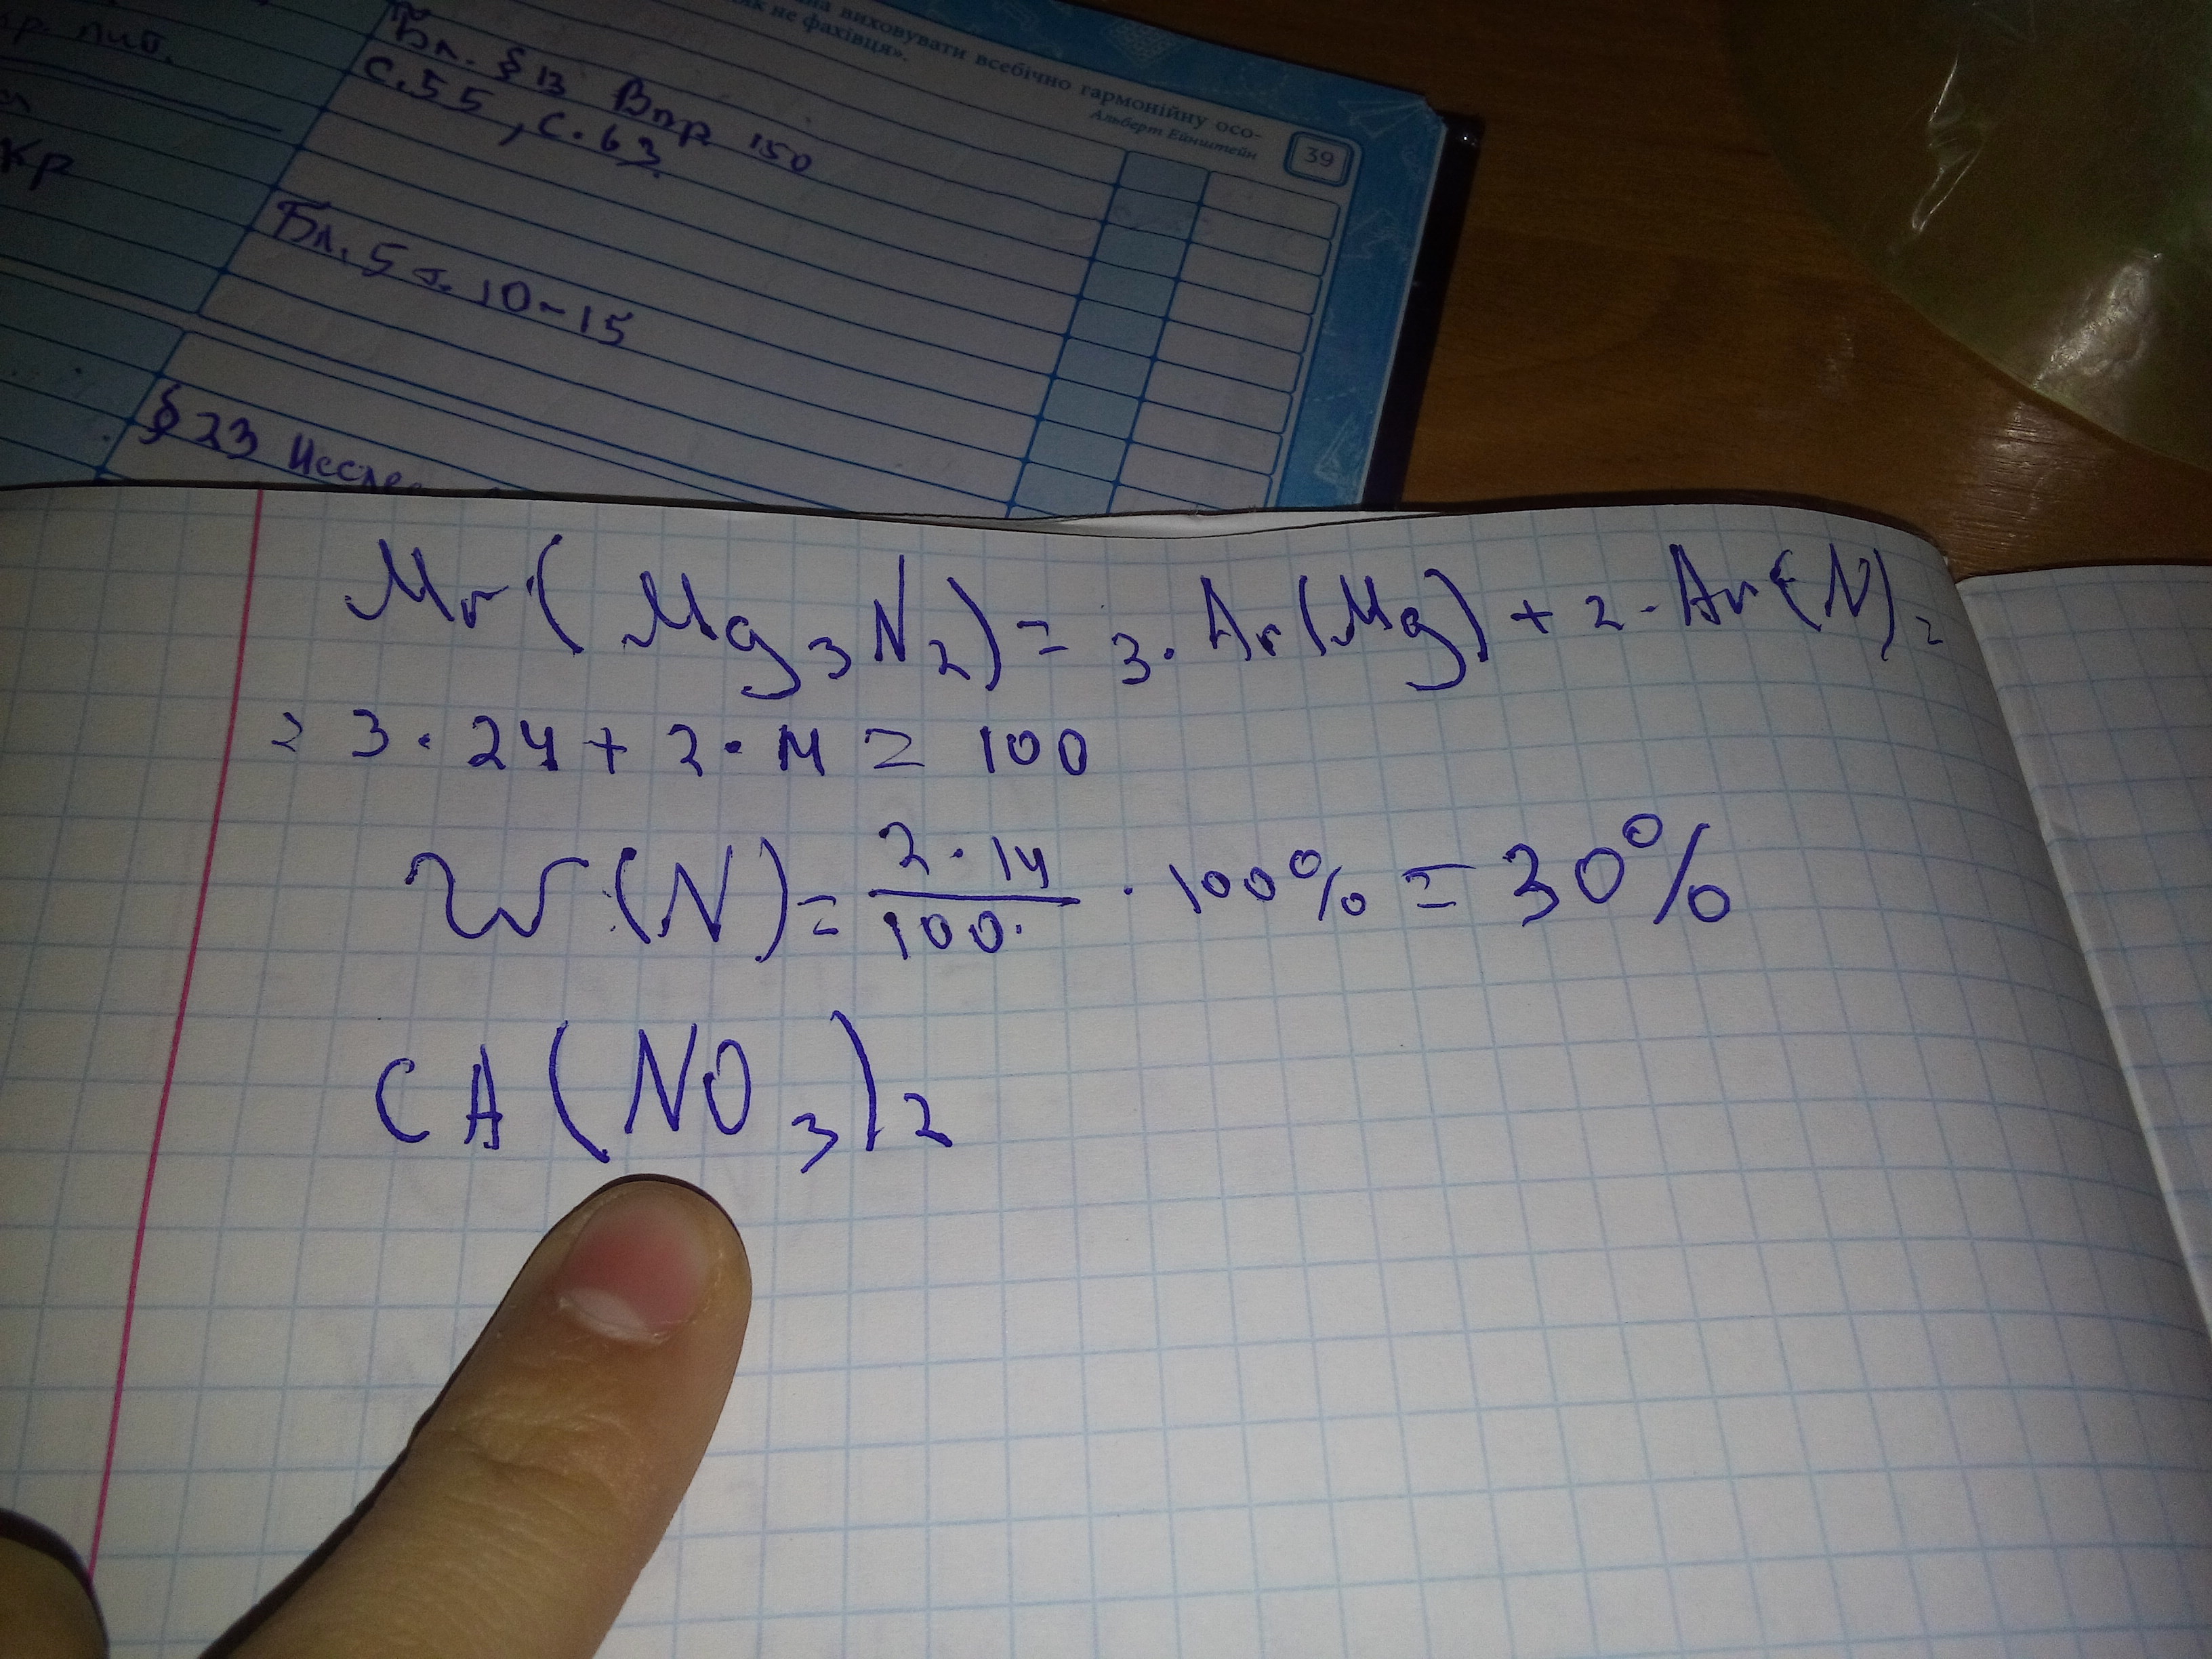 виховувати всебічно гармонійну осо-
як не фахівця».
Альберт Ейнштейн
39
Бл. § 13 Впр 150
с.55, с.63.
кр
Бл. 5 10-15
§ 23 Иссле
Mr(Mg3N2)= 3·Ar(Mg)+2·Ar(N)=
= 3·24+2·14=100
W(N)= 2·14/100 · 100% = 30%
CA(NO3)2